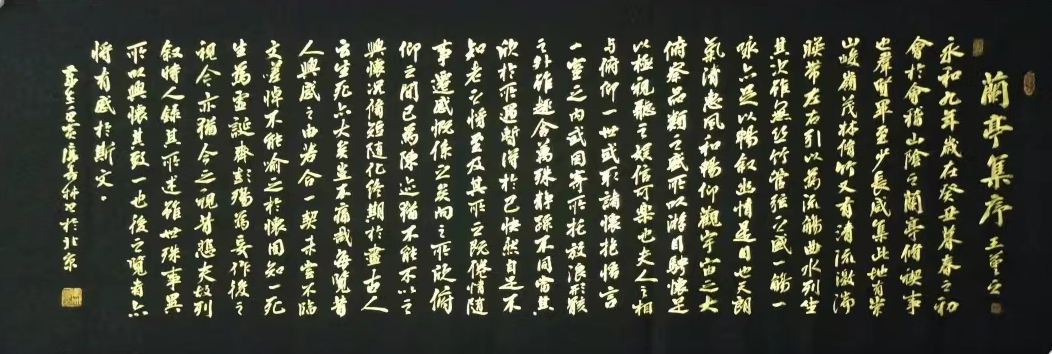 蘭亭集序 王羲之
永和九年歲在癸丑暮春之初
會於會稽山陰之蘭亭脩禊事
也羣賢畢至少長咸集此地有崇
山峻嶺茂林脩竹又有清流激湍
暎帶左右引以為流觴曲水列坐
其次雖無絲竹管弦之盛一觴一
詠亦足以暢敘幽情是日也天朗
氣清惠風和暢仰觀宇宙之大
俯察品類之盛所以游目騁懷足
以極視聽之娛信可樂也夫人之相
與俯仰一世或取諸懷抱悟言
一室之內或因寄所托放浪形骸
之外雖趣舍萬殊靜躁不同當其
欣於所遇暫得於己快然自足不
知老之將至及其所之既倦情隨
事遷感慨係之矣向之所欣俯
仰之間已為陳迹猶不能不以之
興懷況脩短隨化終期於盡古人
云生死亦大矣豈不痛哉每覽昔
人興感之由若合一契未嘗不臨
文嗟悼不能喻之於懷固知一死
生為虛誕齊彭殤為妄作後之
視今亦猶今之視昔悲夫故列
敘時人錄其所述雖世殊事異
所以興懷其致一也後之覽者亦
將有感於斯文。
於北京